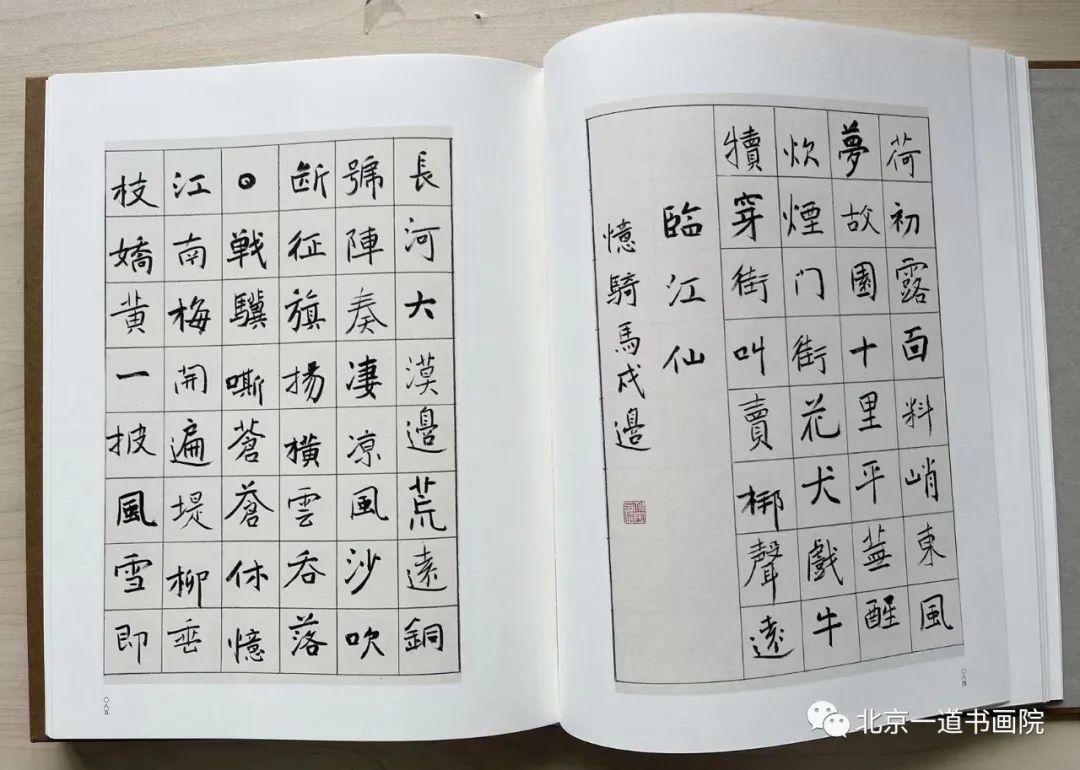 荷初露面料峭東風
夢故園十里平蕪醒
炊煙门街花犬戲牛
犢穿街叫賣梆聲遠
臨江仙
憶騎馬戍邊
〇八四
長河大漠邊荒遠銅
號陣奏凄凉風沙吹
斷征旗揚横雲吞落
。戰驥嘶蒼蒼休憶
江南梅開遍堤柳垂
枝嬌黄一披風雪即
〇八五
北京一道书画院